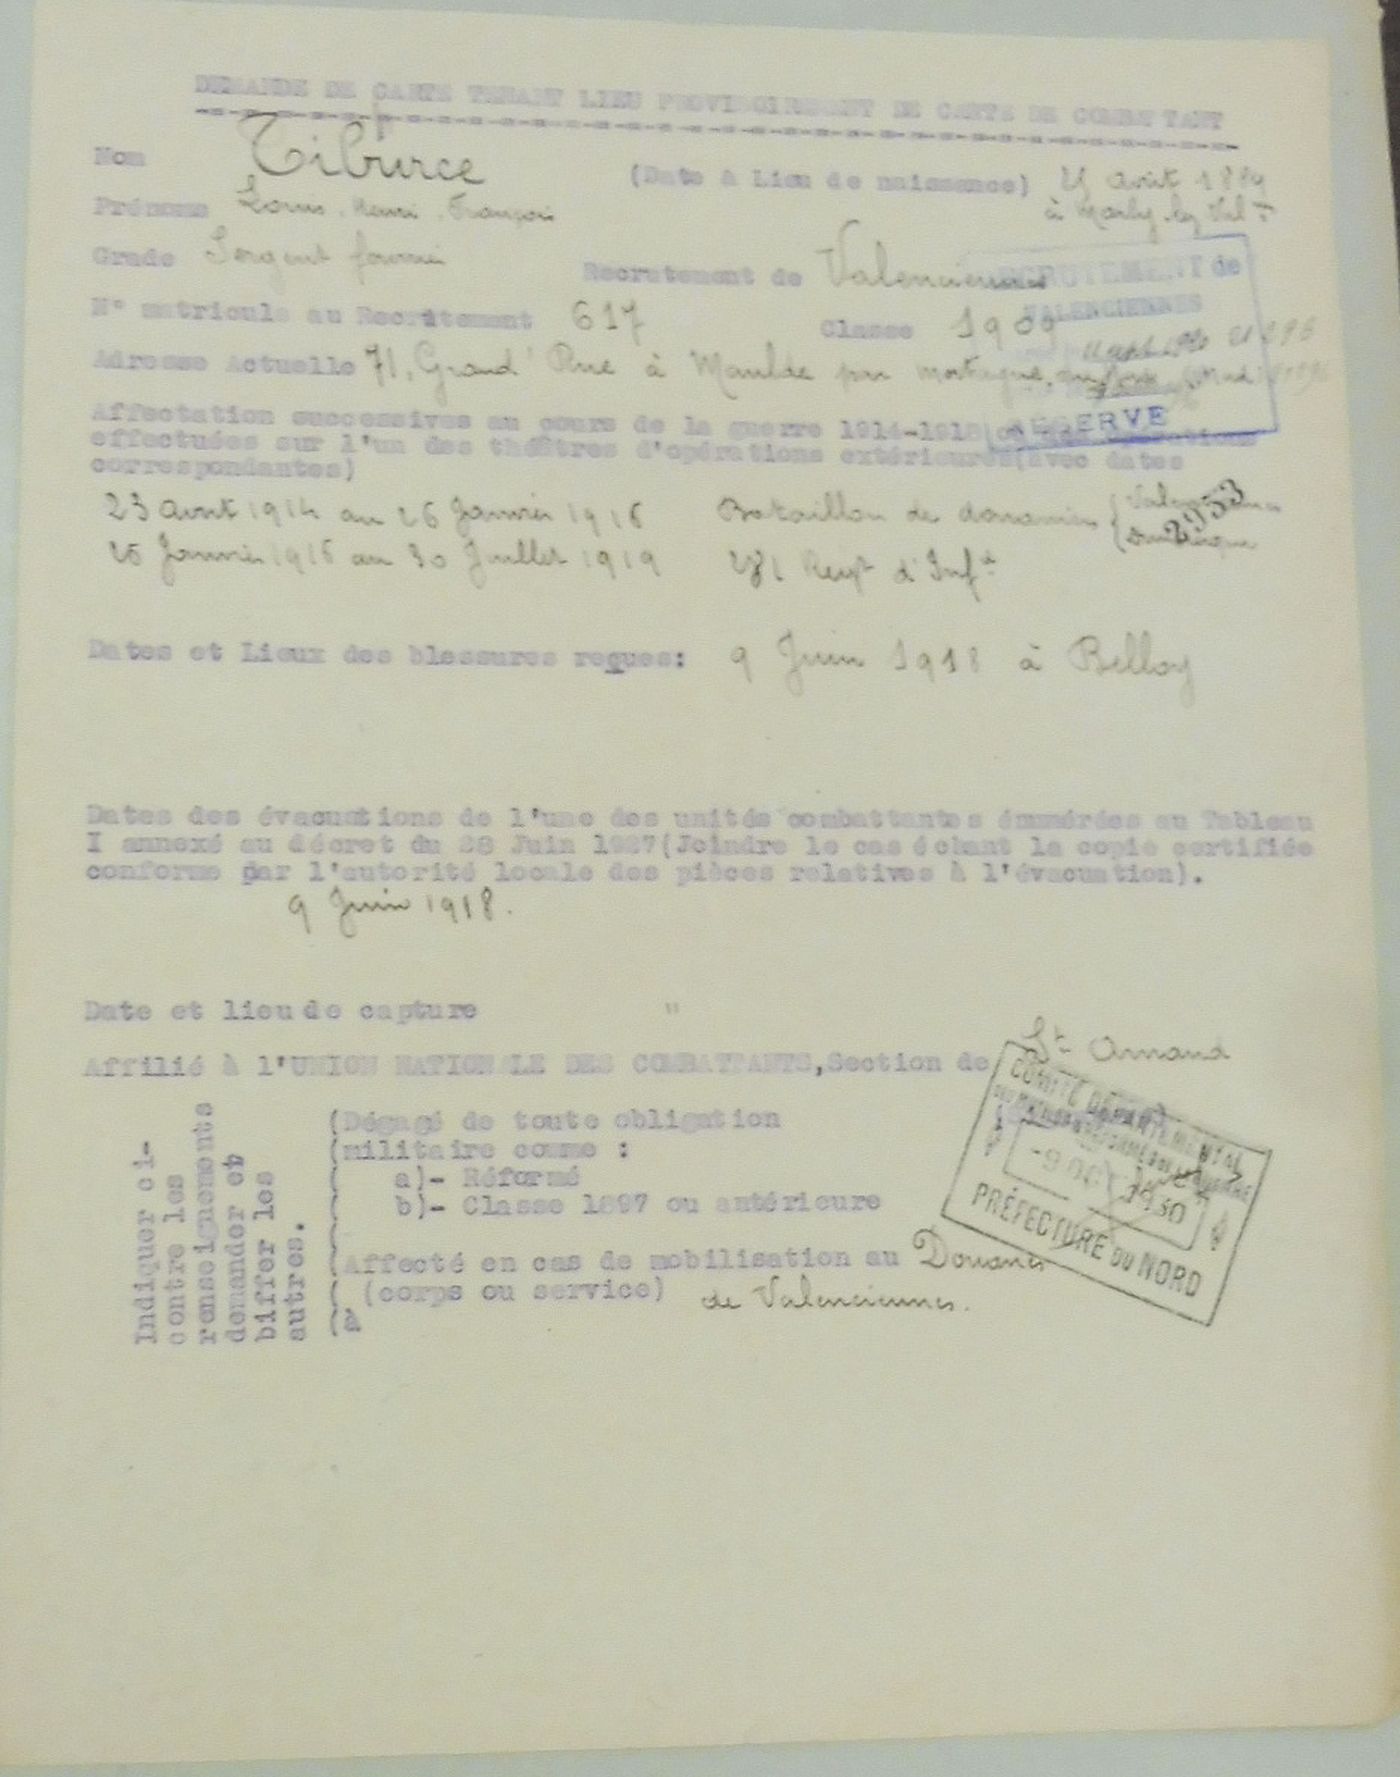 DEMANDE DE CARTE TENANT LIEU PROVISOIREMENT DE CARTE DE COMBATTANT
Nom Tiburce (Date & Lieu de naissance) août
Prénoms Louis. Henri. François à Marly-lez-Val
Grade Sergent fourrier Recrutement de Valenciennes
RECRUTEMENT de
VALENCIENNES
N° matricule au Recrutement 617 Classe 1909
Adresse Actuelle 71, Grand' Rue à Maulde par Mortagne du Nord (Nord)
RÉSERVE
Affectation successives au cours de la guerre 1914-1918
effectuées sur l'un des théâtres d'opérations extérieures(avec dates
correspondantes)
23 août 1914 au 26 Janvier 1916 Bataillon de douaniers { Valenciennes
Dunkerque
2953
26 Janvier 1916 au 30 Juillet 1919 281 Regt d'Inf
Dates et Lieux des blessures reçues: 9 Juin 1918 à Belloy
Dates des évacuations de l'une des unités combattantes énumérées au Tableau
I annexé au décret du 28 Juin 1927(Joindre le cas échant la copie certifiée
conforme par l'autorité locale des pièces relatives à l'évacuation).
9 Juin 1918.
Date et lieu de capture "
Affilié à l'UNION NATIONALE DES COMBATTANTS,Section de St Amand
COMITÉ DÉPARTEMENTAL
-9 OCT 1930
PRÉFECTURE DU NORD
Indiquer ci-
contre les
renseignements
demander et
biffer les
autres.
(Dégagé de toute obligation
(militaire comme :
a)- Réformé
b)- Classe 1897 ou antérieure
(Affecté en cas de mobilisation au Douanes
(corps ou service) de Valenciennes.